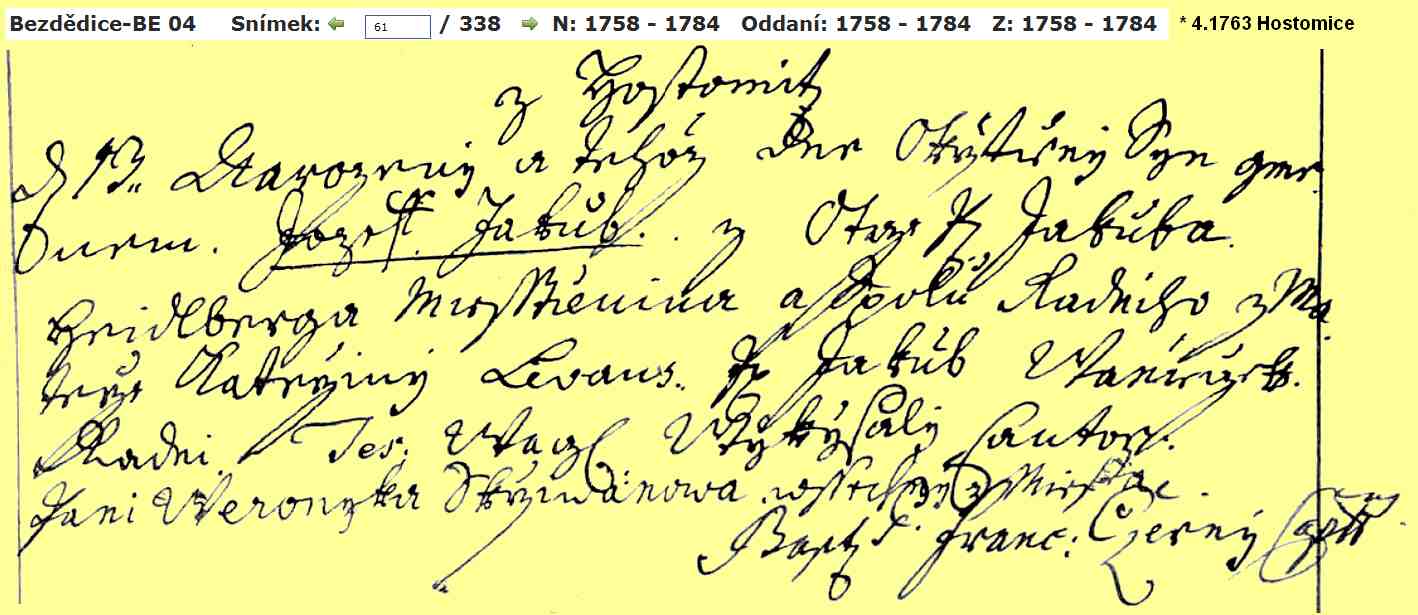 Bezdědice-BE 04 Snímek: 61 / 338 N: 1758 - 1784 Oddaní: 1758 - 1784 Z: 1758 - 1784 * 4.1763 Hostomice
z Hostomitz
d 13. Narozeny a tehoz Dne Okrztieny Syn gme
nem. Jozeff Jakub. z Otze P. Jakuba
Heidlberga Miesstienina a Spolu Radniho z Ma
terze Katerziny Levans. P. Jakub Wanieczek.
Radni. Tes. Waczl. cantor.
Pani Weronyka Skrziwanowa wssichny z Miestecz.
Bapt. Franc. Czerny Capll